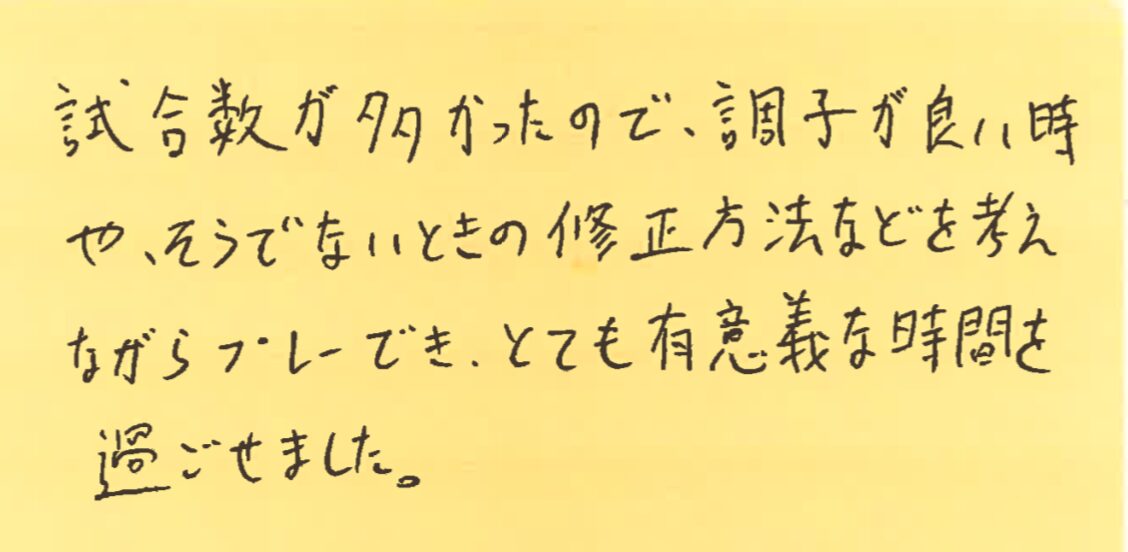 試合数が多かったので、調子が良い時
や、そうでないときの修正方法などを考え
ながらプレーでき、とても有意義な時間を
過ごせました。